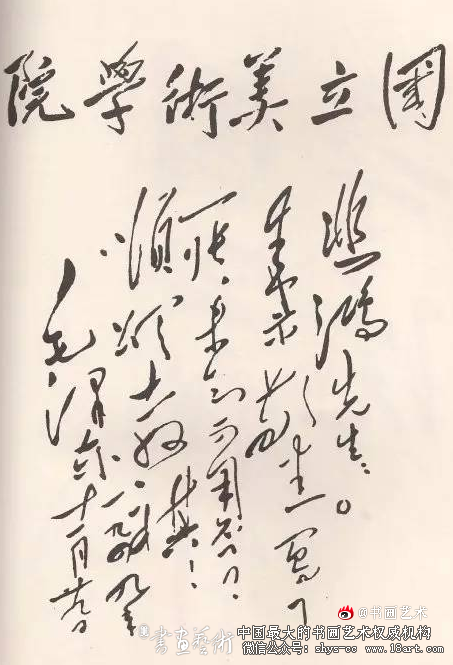 國立美術學院
悲鴻先生：
來示敬悉。寫了
一張，未知可用否？
順頌
教祺！
毛澤東
一九四九年
十一月廿九日
@书画艺术
書画藝術
中国最大的书画艺术权威机构
微信公众号：shys-oc www.18art.com